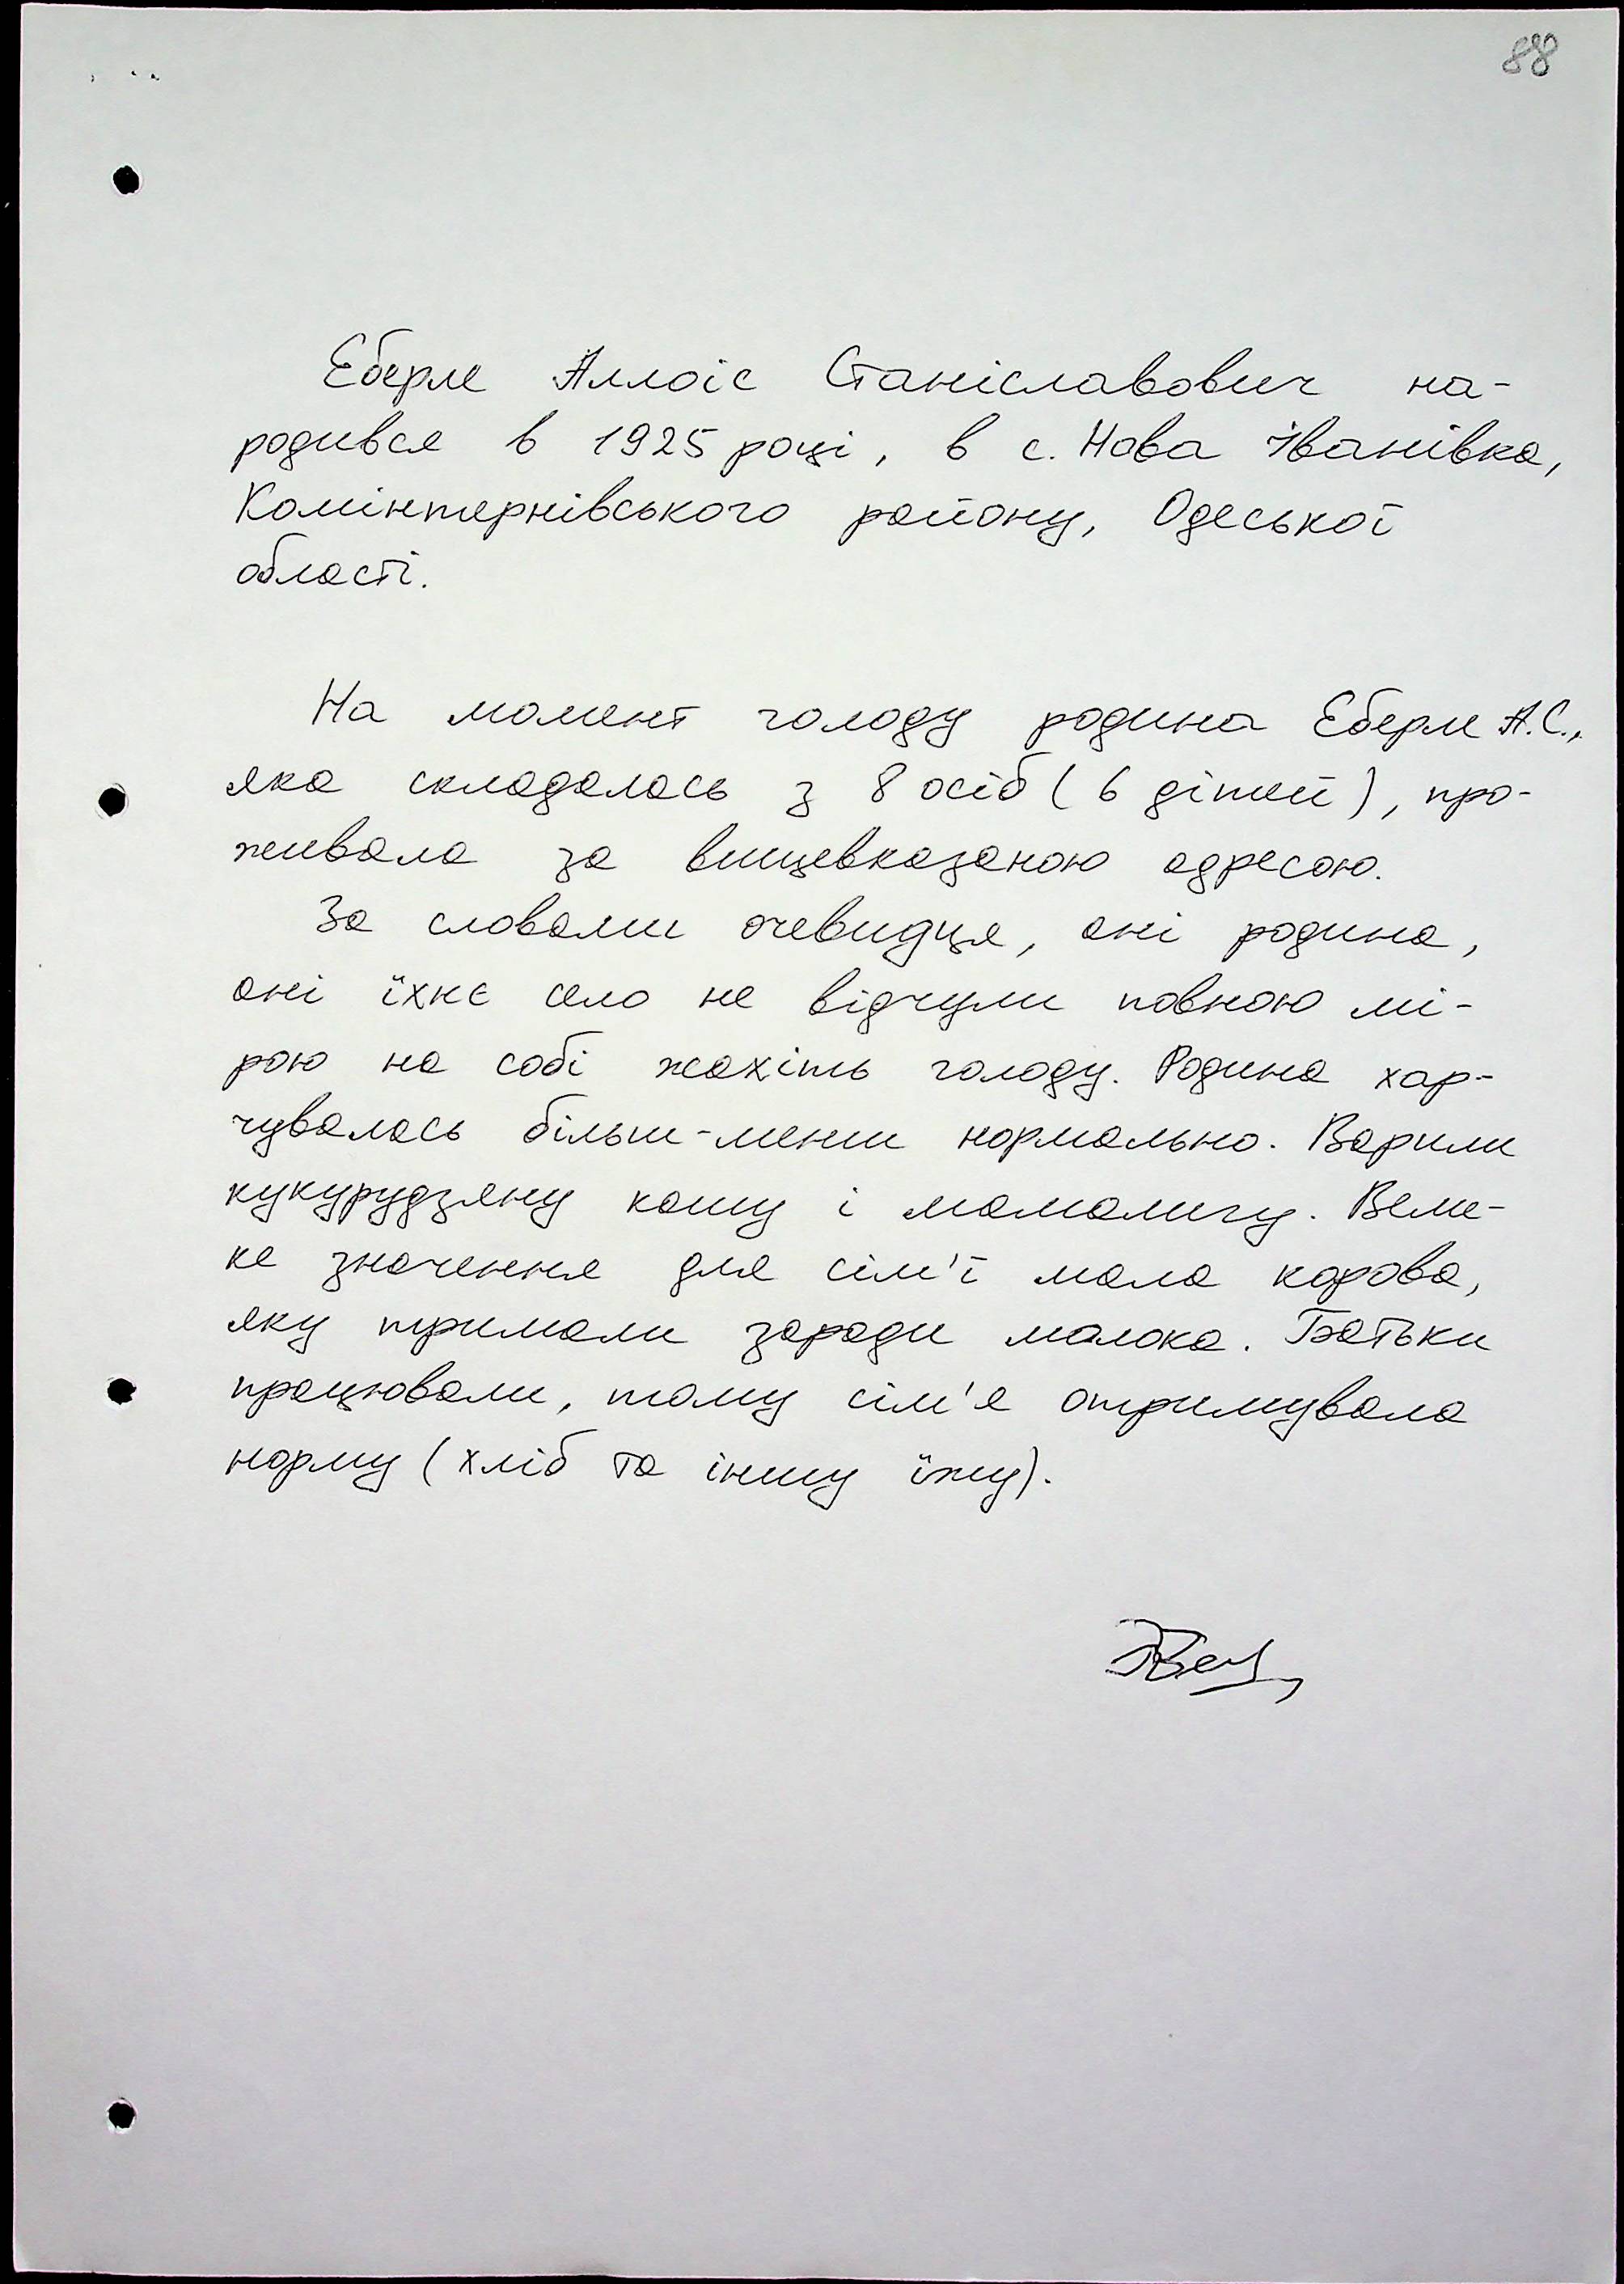 88
Еберле Аллоіс Станіславович на-
родився в 1925 році, в с. Нова Іванівка,
Комінтернівського району, Одеської
області.
На момент голоду родина Еберле А.С.,
яка складалась з 8 осіб (6 дітей), про-
живала за вищевказаною адресою.
За словами очевидця, ані родина,
ані їхнє село не відчули повною мі-
рою на собі жахіть голоду. Родина хар-
чувалась більш-менш нормально. Варили
кукурудзяну кашу і мамалигу. Вели-
ке значення для сім'ї мала корова,
яку тримали заради молока. Батьки
працювали, тому сім'я отримувала
норму (хліб та іншу їжу).